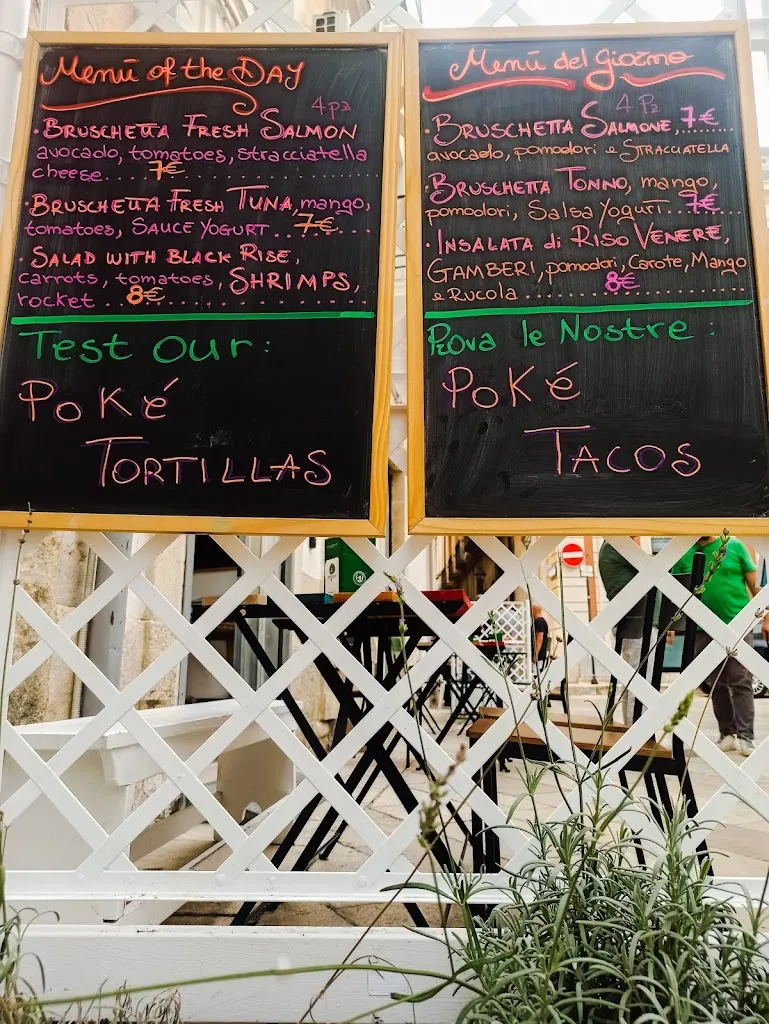 Menù of the DAY
4 pz
• BRUSCHETTA FRESH SALMON
avocado, tomatoes, stracciatella
cheese .... 7€ ..........
• BRUSCHETTA FRESH TUNA, mango,
tomatoes, SAUCE YOGURT ... 7€ ....
• SALAD WITH BLACK RISE,
carrots, tomatoes, SHRIMPS,
rocket .... 8€ ..........
Test our:
POKÉ
TORTILLAS
Menù del Giorno
4 Pz
• BRUSCHETTA SALMONE, 7€
avocado, pomodori e STRACCIATELLA
• BRUSCHETTA TONNO, mango,
pomodori, Salsa Yogurt .... 7€
• INSALATA di RISO VENERE,
GAMBERI, pomodori, Carote, Mango
e RUCOLA .......... 8€
Prova le Nostre:
POKÉ
TACOS